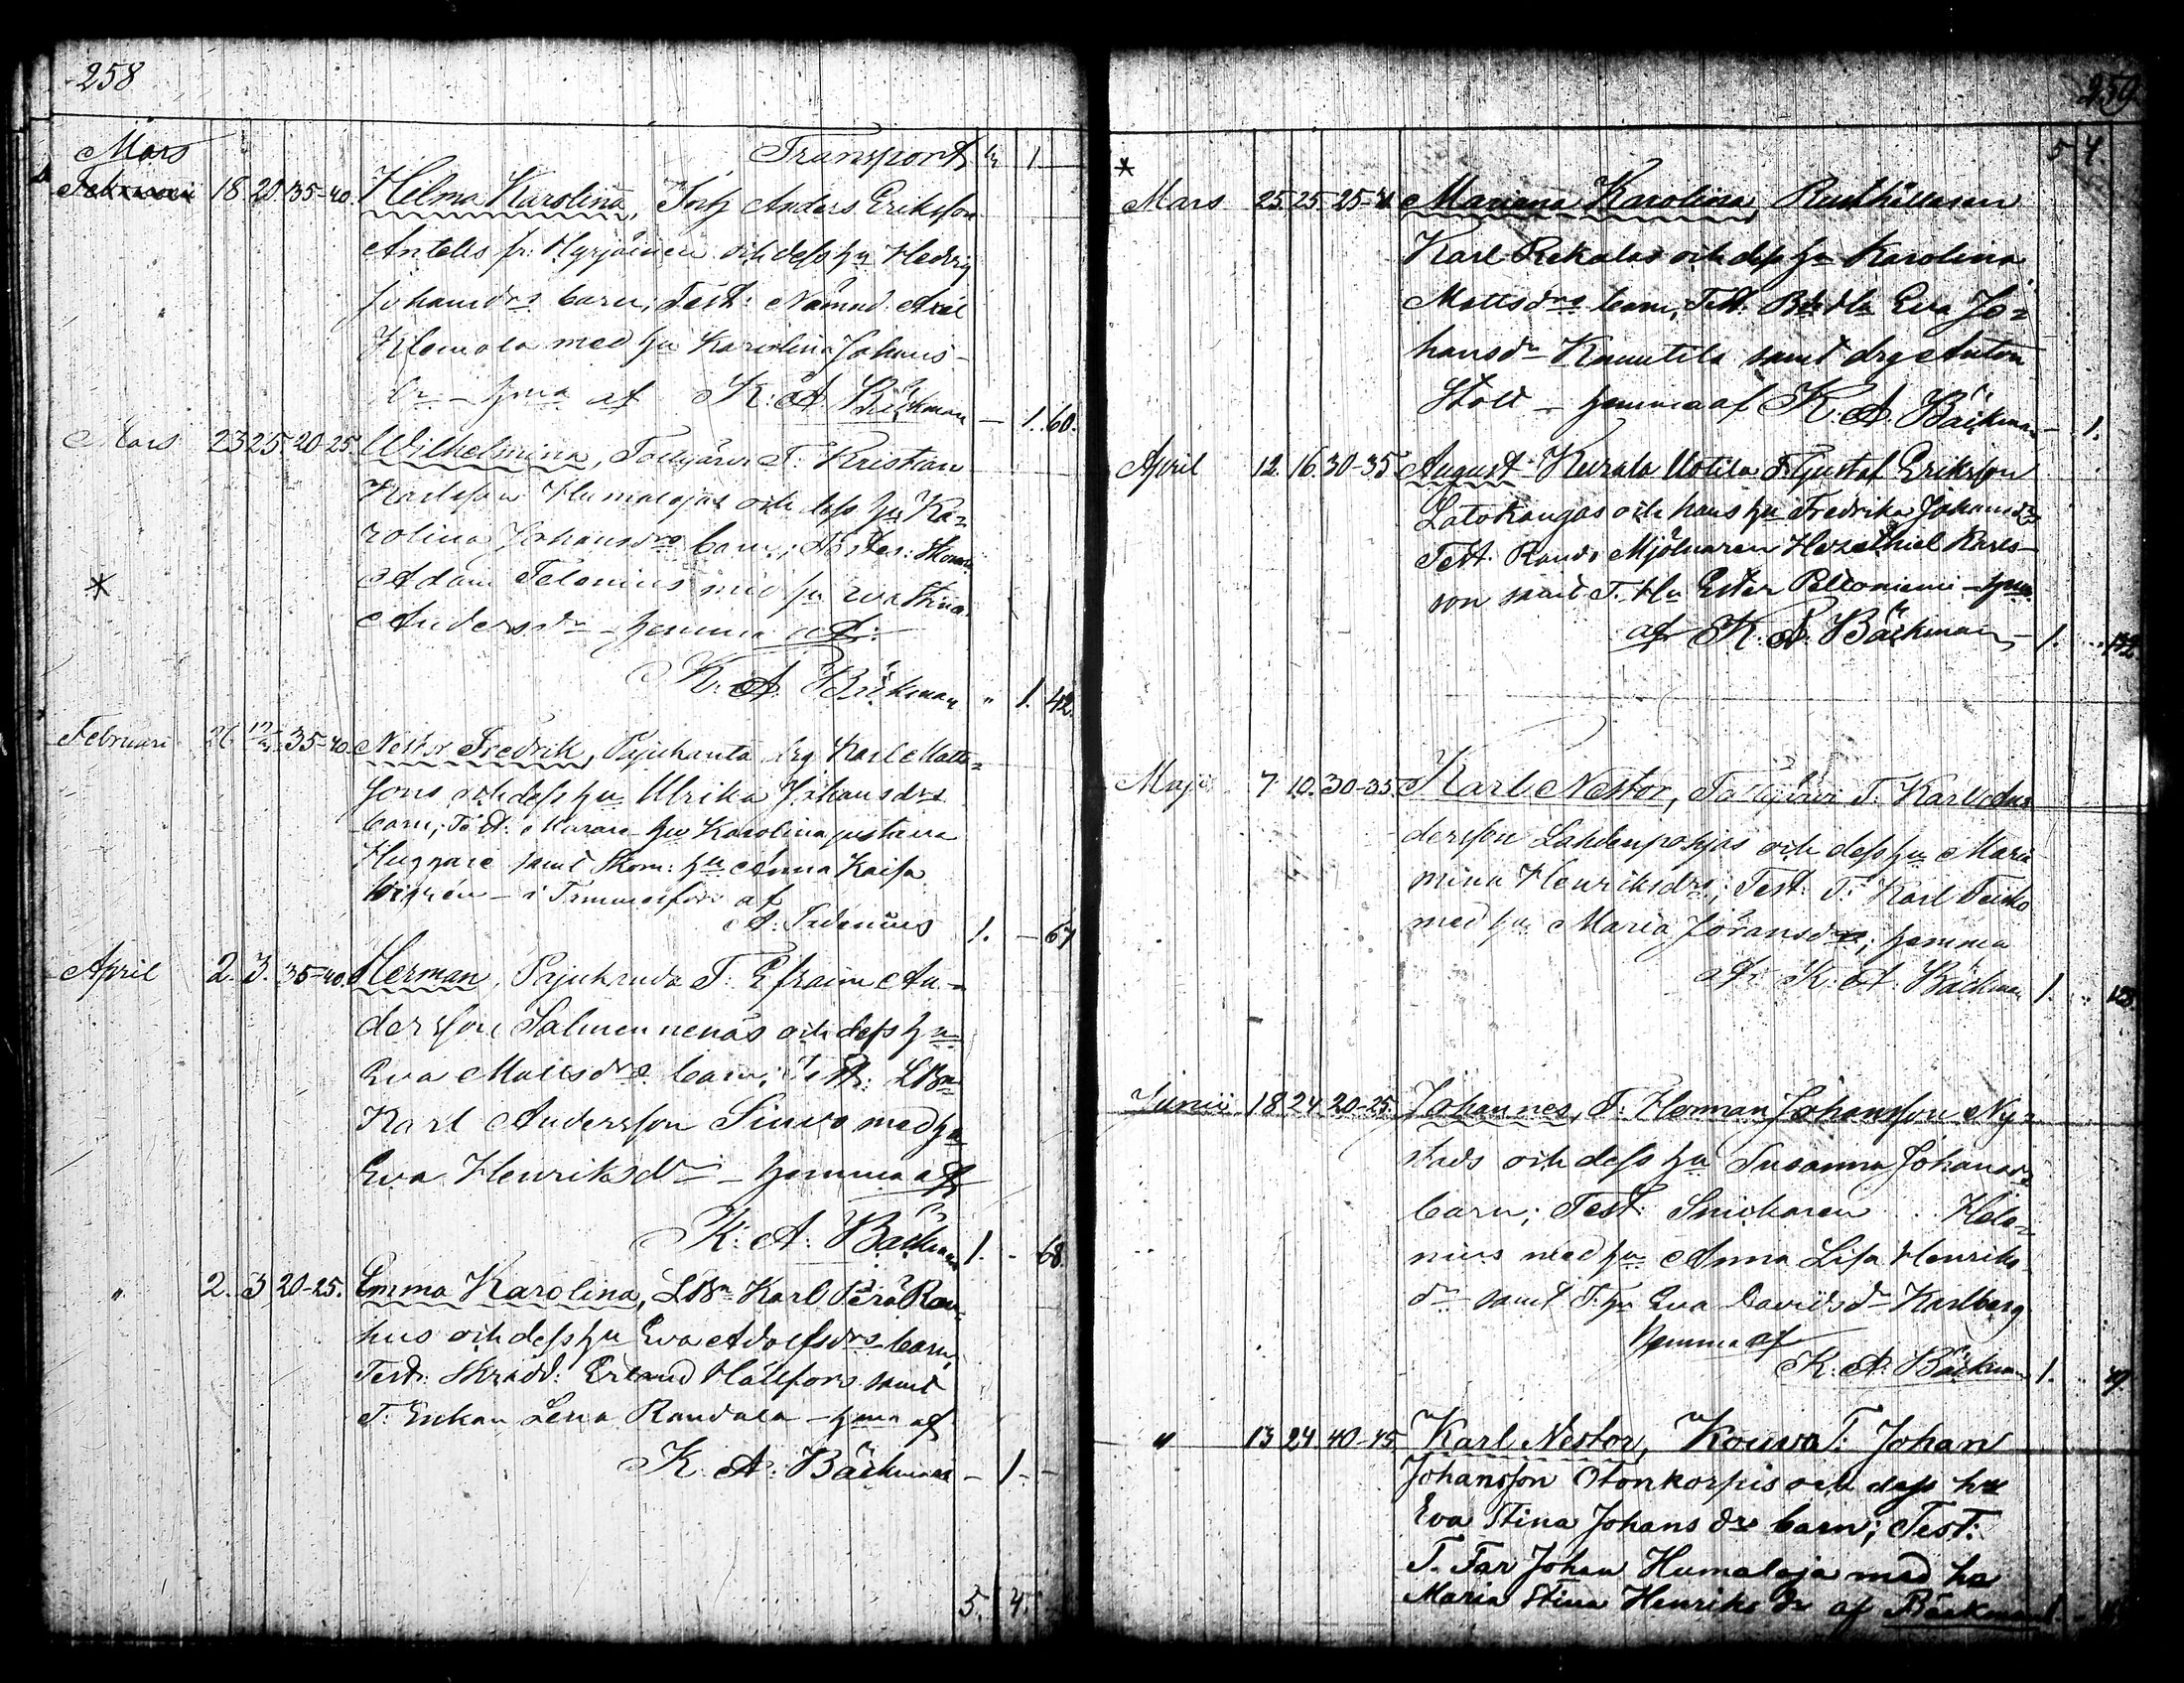 258
Mars
Transport 3 1.
Februari 18 20. 35-40. Helma Karolina, Torp Anders Eriksson
Antells fr: Hyrjäinen och dess hu Hedvig
Johansdrs barn; Test: Nämnd. Axel
med hu Karolina Johans-
dr - hma af K: A: Bäckman - 1. 60.
Mars 23 25. 20-25. Wilhelmina, T: Kristian
Karlsson Humalojas och dess hu Ka-
rolina Johansdrs barn; Testes: Skom:
Adam Felenius med hu Eva Stina
Andersdr - hemma af:
K. A. Bäckman " 1. 42.
Februari 26 35-40. Nestor Fredrik, Pajukanta drg Karl Matts-
sons och dess hu Ulrika Johansdrs
barn; Test: Murare hu Karolina Gustava
Huggare samt Skom: hu Anna Kaisa
- i Tammerfors af
A: 1. - 67
April 2. 3. 35-40. Herman, Pajukanda T: Efraim An-
dersson Salmennenäs och dess hu
Eva Mattsdrs barn; Test: LBn
Karl Andersson Siuvo med hu
Eva Henriksdr - hemma af
K: A: Bäckman 1. - 68.
" 2. 3 20-25. Emma Karolina, LBn Karl Perä Rau-
hus och dess hu Eva Adolfsdrs barn;
Test: Skrädd: Erland Hällfors samt
T: Enkan Lena Randala - hma af
K. A: Bäckman - 1 -
5. 4.
259
5 4.
*
Mars 25. 25. 25- Mariana Karolina, Rusthållaren
Karl Rekolas och dess hu Karolina
Mattsdrs barn, Test: Bdr Eva Jo-
hansdr Kauutila samt drg Anton
Stolt - hemma af K. A. Bäckman - 1.
April 12. 16. 30-35 August Keurala Uotila T: Gustaf Eriksson
Latokangas och hans hu Fredrika Johansdrs
Test: Mjölnaren Hezekiel Karls-
son samt T. Hu Ester Peltoniemi - hma
af K. A. Bäckman 1. 172
Maji 7 10. 30-35. Karl Nestor, T: Karl An-
dersson Lahdenpohjas och dess hu Maria
mina Henriksdrs; Test: T: Karl Teisko
med hu Maria Göransdr; hemma
af: K. A. Bäckman 1. 128.
Junii 18 24 20-25. Johannes, T: Herman Johansson Ny-
stads och dess hu Susanna Johansdrs
barn; Test: Snickaren Hele-
nius med hu Anna Lisa Henriks-
dr samt T: hu Eva Davidsdr Karlberg
Hemma af
K. A: Bäckman 1. 49.
" 13 24 40-45 Karl Nestor, Kouva T: Johan
Johansson Otonkorpis och dess hu
Eva Stina Johansdrs barn; Test:
T. Far Johan Humaloja med hu
Maria Stina Henriksdr af Bäckman 1 -